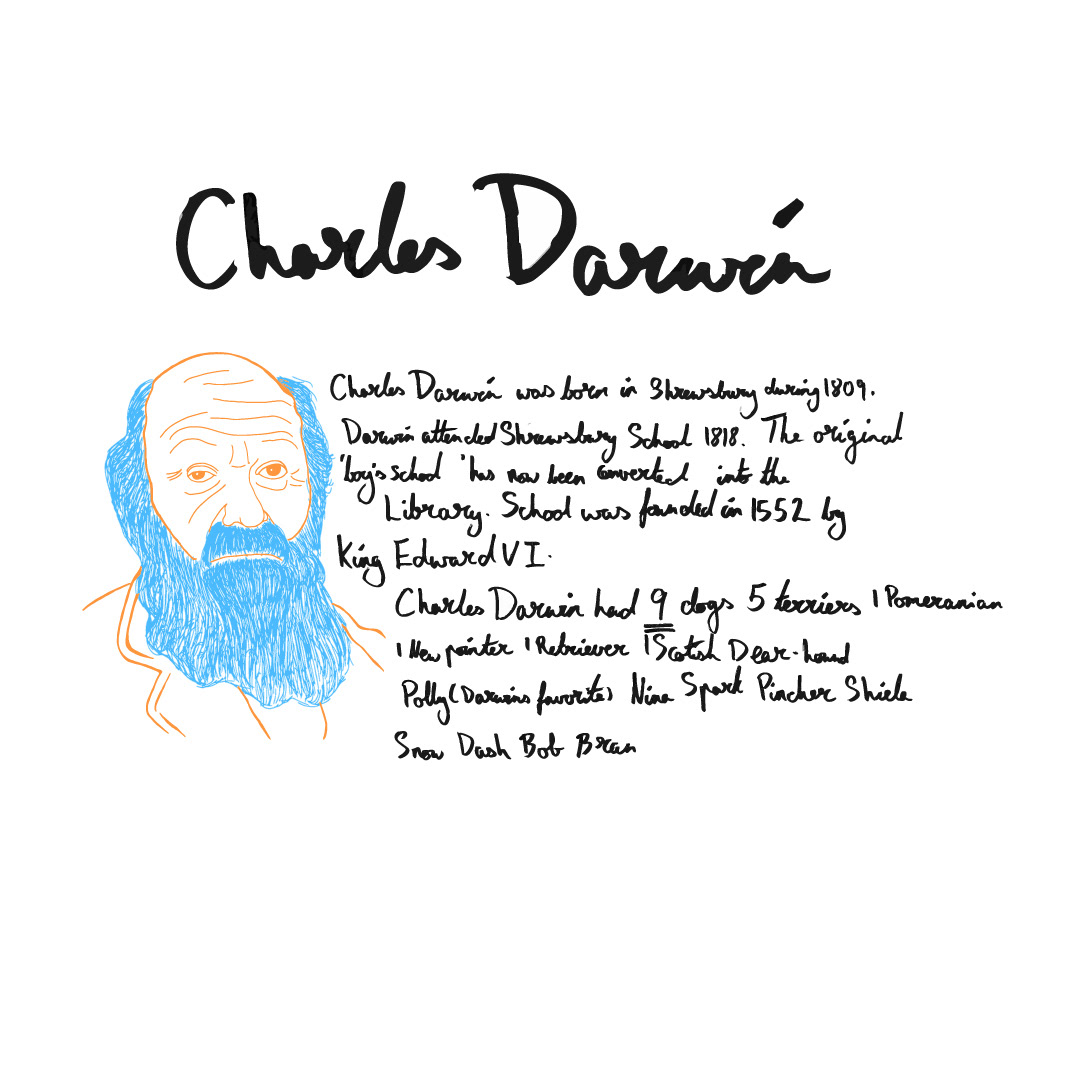 Charles Darwin
Charles Darwin was born in Shrewsbury during 1809.
Darwin attended Shrewsbury School 1818. The original
'boy's school' has now been converted into the
Library. School was founded in 1552 by
King Edward VI.
Charles Darwin had 9 dogs 5 terriers 1 Pomeranian
1 New pointer 1 Retriever 1 Scotish Dear-hound
Polly (Darwins favorite) Nina Spark Pincher Shiela
Snow Dash Bob Bran